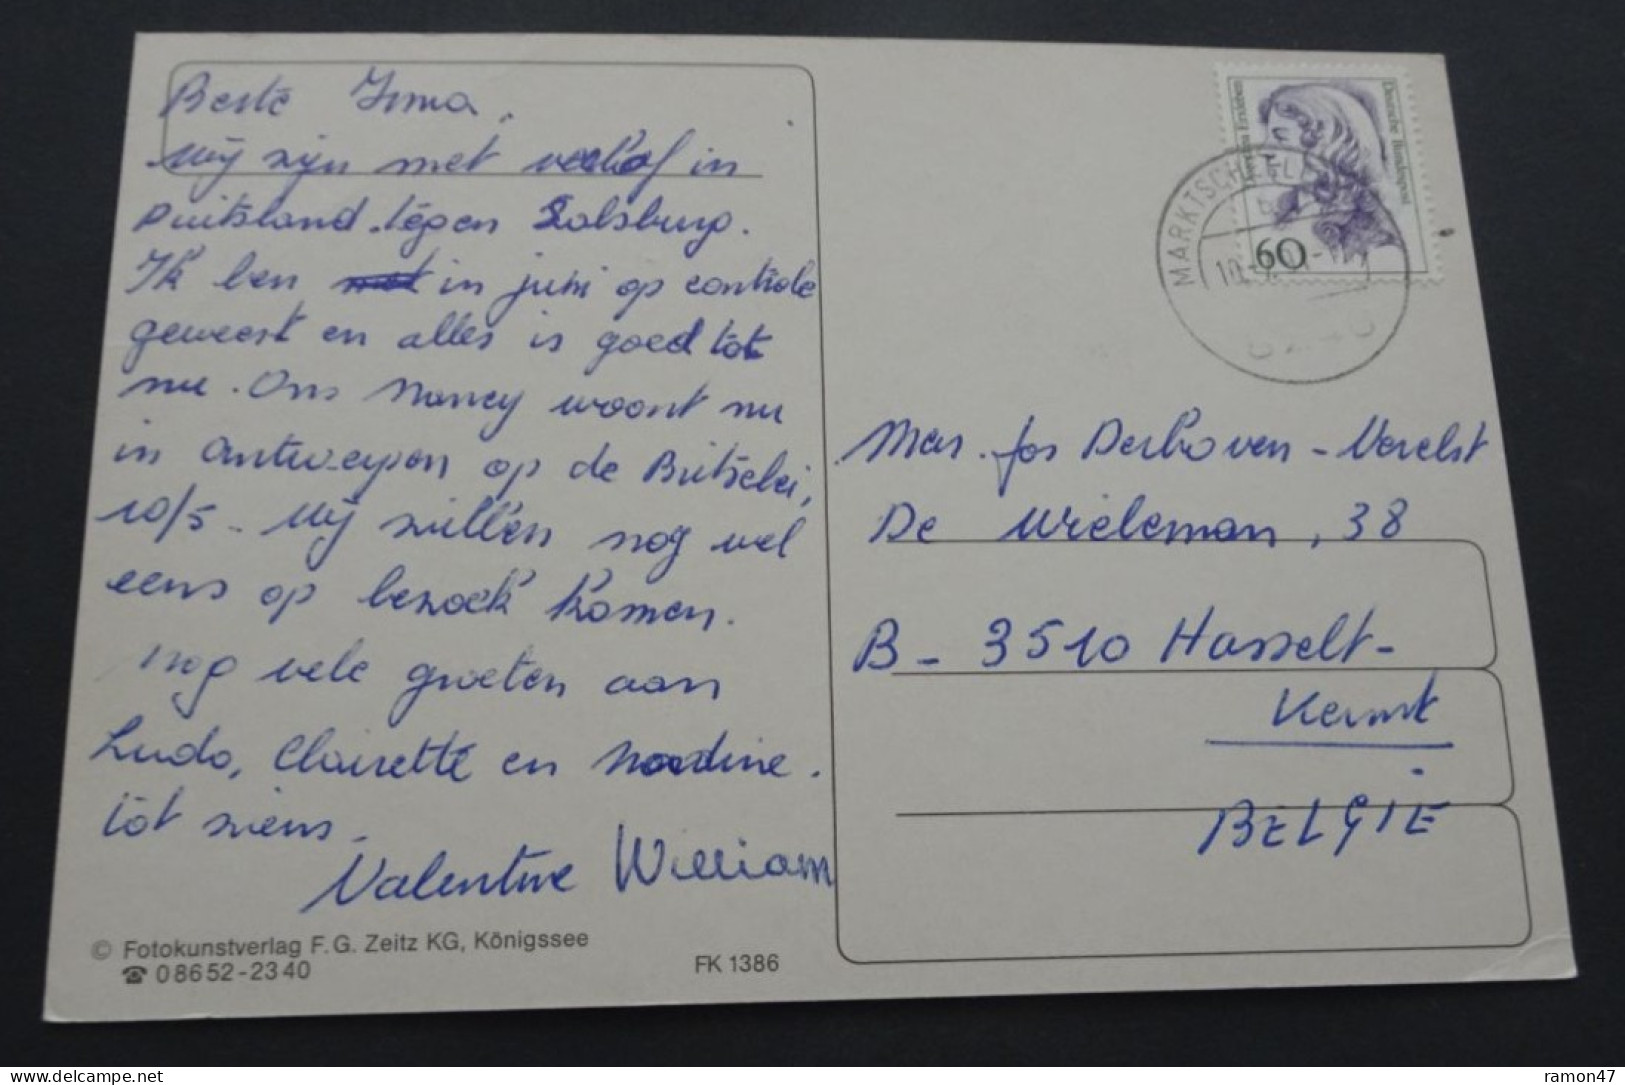 Beste Irma,
Wij zijn met verlof in
Duitsland tegen Salsburg.
Ik ben met in juni op controle
geweest en alles is goed tot
nu. Ons Nancy woont nu
in Antwerpen op de Britselei,
10/5 - Wij zullen nog wel
eens op bezoek komen.
nog vele groeten aan
Ludo, Clairette en Nadine.
tot ziens -
Valentine William
© Fotokunstverlag F. G. Zeitz KG, Königssee
☎ 0 86 52 - 23 40
FK 1386
Deutsche Bundespost
60
MARKTSCHELL
Jos Derhoven - Verelst
De Wieleman, 38
B - 3510 Hasselt -
Kermt
BELGIE
ramon47